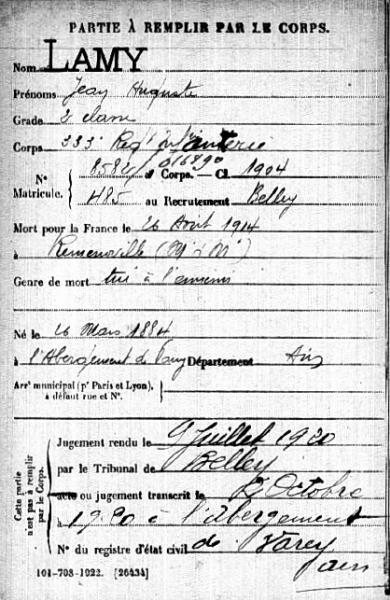 PARTIE À REMPLIR PAR LE CORPS.
Nom LAMY
Prénoms Jean Auguste
Grade 2 classe
Corps 333 Regt Infanterie
N° 8582/016890 au Corps. — Cl. 1904
Matricule. 485 au Recrutement Belley
Mort pour la France le 26 Août 1914
à Remenoville (M & M)
Genre de mort tué à l'ennemi
Né le 26 Mars 1884
à l'Abergement de Varey Département Ain
Arrt municipal (pr Paris et Lyon),
à défaut rue et N°.
Cette partie
n'est pas à remplir
par le Corps.
Jugement rendu le 9 Juillet 1920
par le Tribunal de Belley
acte ou jugement transcrit le 2 Octobre
à 1920 à l'abergement
N° du registre d'état civil de Varey
ain
101-708-1922. [26434]